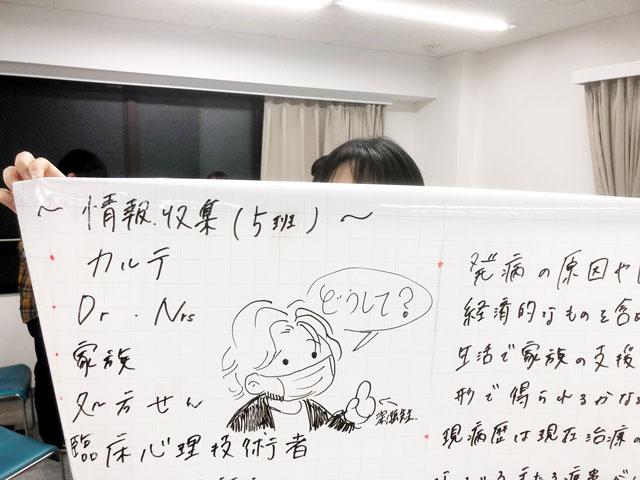 ～情報収集(5班)～
・カルテ
・Dr．Nrs
・家族
処方せん
臨床心理技術者
どうして？
・発病の原因や
経済的なものを含め
生活で家族の支援
形で得られるかな
・現病歴は現在治療の